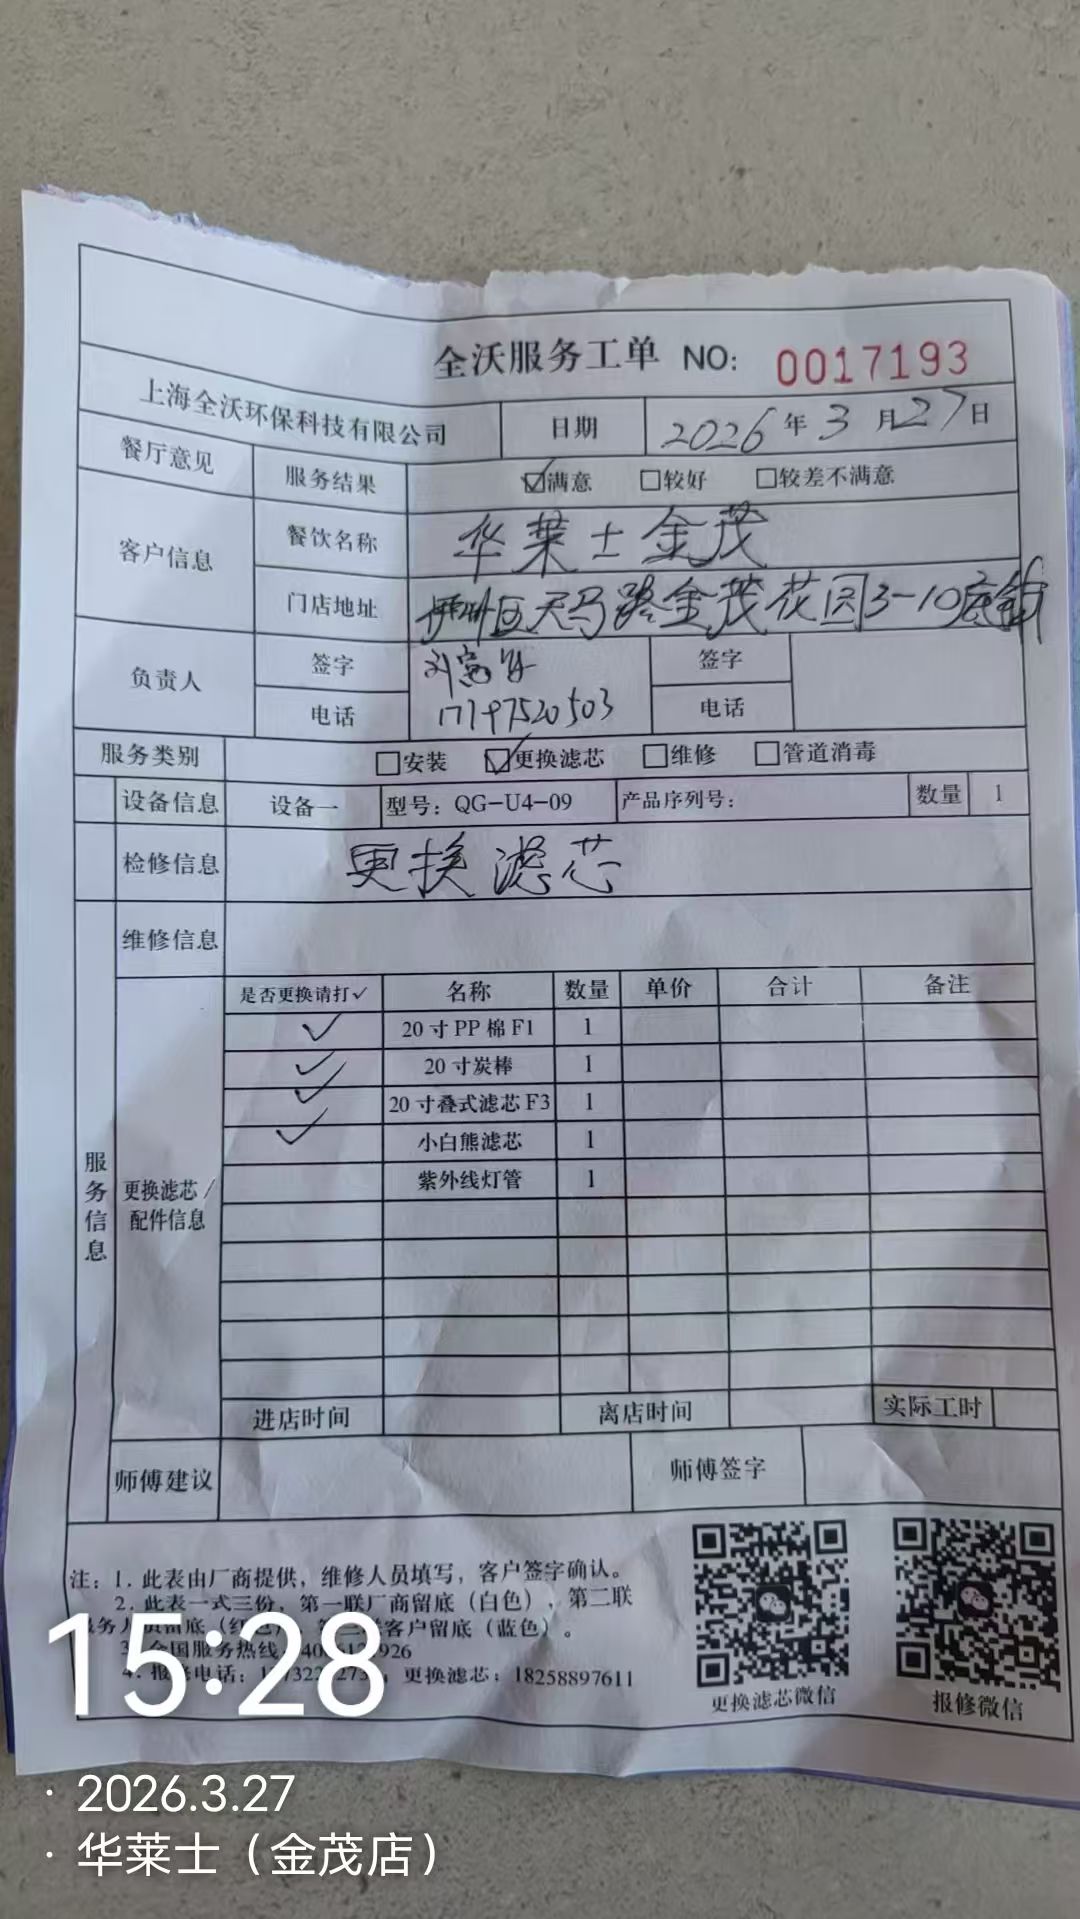 全沃服务工单 NO: 0017193
上海全沃环保科技有限公司 日期 2026年3月27日
餐厅意见 服务结果 ☑满意 □较好 □较差不满意
客户信息 餐饮名称 华莱士金茂
门店地址 区天马路金茂花园3-10底铺
负责人 签字 刘富 签字
电话 17197520503 电话
服务类别 □安装 ☑更换滤芯 □维修 □管道消毒
设备信息 设备一 型号: QG-U4-09 产品序列号: 数量 1
检修信息 更换滤芯
维修信息
服务信息 更换滤芯/配件信息
是否更换请打✓ 名称 数量 单价 合计 备注
✓ 20寸PP棉F1 1
✓ 20寸炭棒 1
✓ 20寸叠式滤芯F3 1
✓ 小白熊滤芯 1
紫外线灯管 1
进店时间 离店时间 实际工时
师傅建议 师傅签字
注: 1. 此表由厂商提供，维修人员填写，客户签字确认。
2. 此表一式三份，第一联厂商留底（白色），第二联
留底 客户留底（蓝色）。
全国服务热线
4. 报修电话: 更换滤芯: 18258897611
更换滤芯微信 报修微信
15:28
· 2026.3.27
· 华莱士（金茂店）